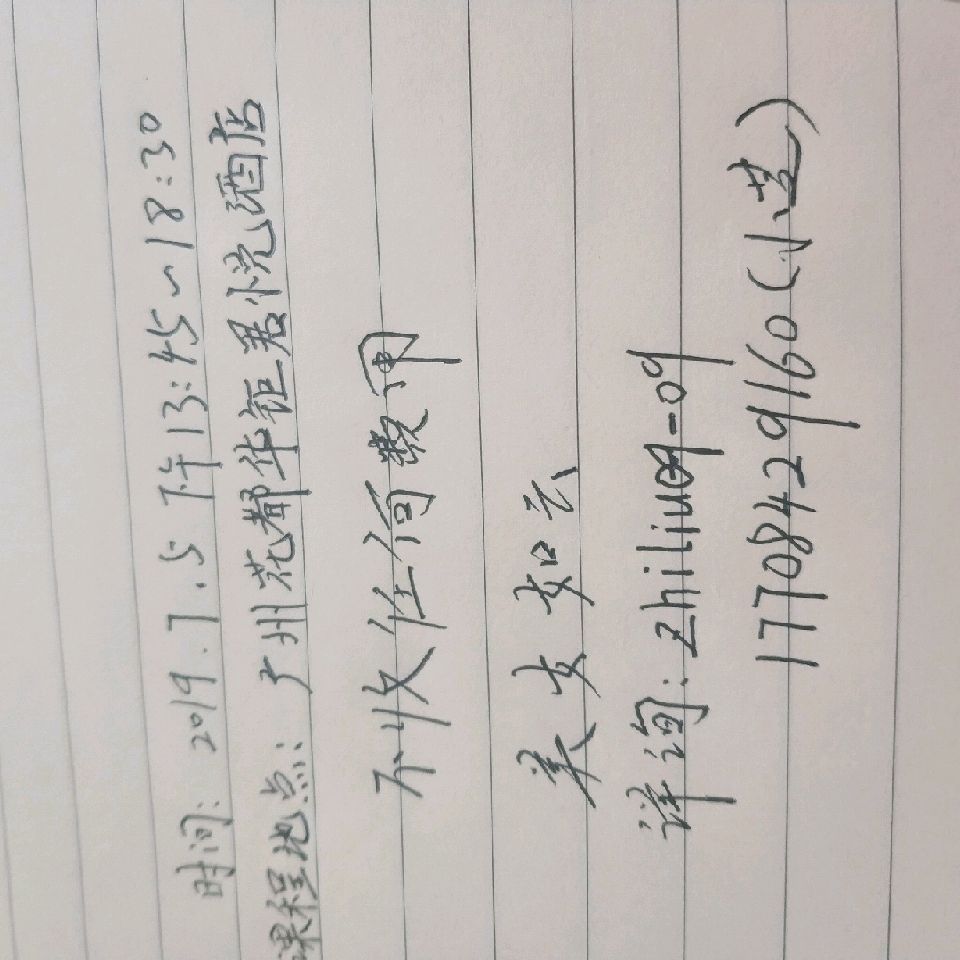 时间: 2019.7.5 下午13:45~18:30
课程地点: 广州花都华钜君悦酒店
不收任何费用
美女如云
详询: zhiliu09-09
17708429160(小芝)